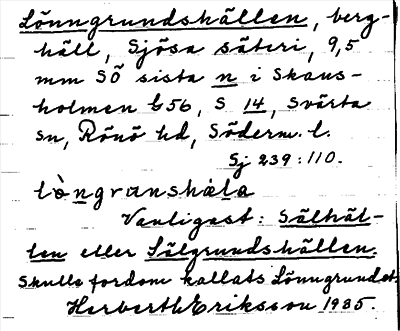 Lönngrundshällen, berg-
häll, Sjösa säteri, 9,5
mm SÖ sista n i Skans-
holmen G56, S 14, Svärta
sn, Rönö hd, Söderm. l.
Sj 239:110.
lòngrunshäla
Vanligast: Sälhäl-
len eller Sälgrundshällen.
Skulle fordom kallats Lönngrundet.
Herbert Eriksson 1935.